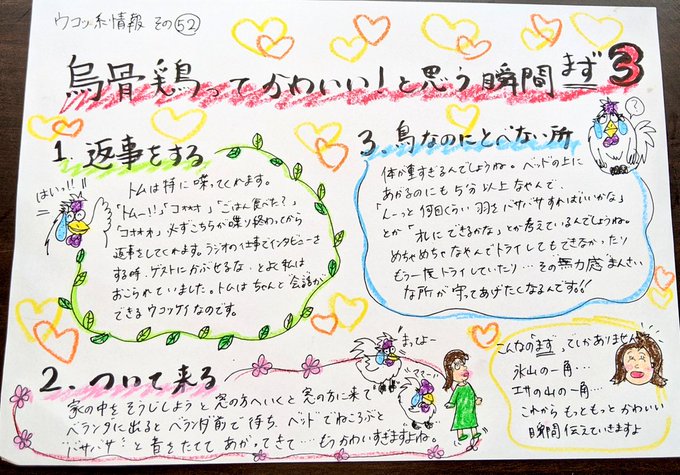 ウコッ系情報 その㊾
烏骨鶏ってかわいい!と思う瞬間まず3
1. 返事をする
はいっ!!
トムは特に喋ってくれます。
「トムー!!」「コォォォ」「ごはん食べた?」
「コォォォ」必ずこちらが喋り終わってから
返事をしてくれます。ラジオの仕事でインタビューを
する時、ゲストにかぶせるな…とよく私は
おこられていました。トムはちゃんと会話が
できるウコッケイなのです。
2. ついて来る
まってよー
ママー!
家の中をそうじしようと窓の方へいくと窓の方に来て
ベランダに出るとベランダ前で待ち、ベッドでねころぶと
"バサバサ"と音をたてて あがってきて…もうかわいすぎますよね。
3. 鳥なのにとべない所
?
体が重すぎるんでしょうね。ベッドの上に
あがるのにも5分以上なやんで、
「んーっと何回くらい羽をバサバサすればいいかな」
とか「オレにできるかな」とか考えているんでしょうね。
めちゃめちゃなやんでトライしてもできなかったり
もう一度トライしていたり…その"無力感"まんさい
な所が守ってあげたくなるんです!!
こんな"まず"っていかありません
氷山の一角…
エサの山の一角…
これからもっともっとかわいい
瞬間伝えていきますよ